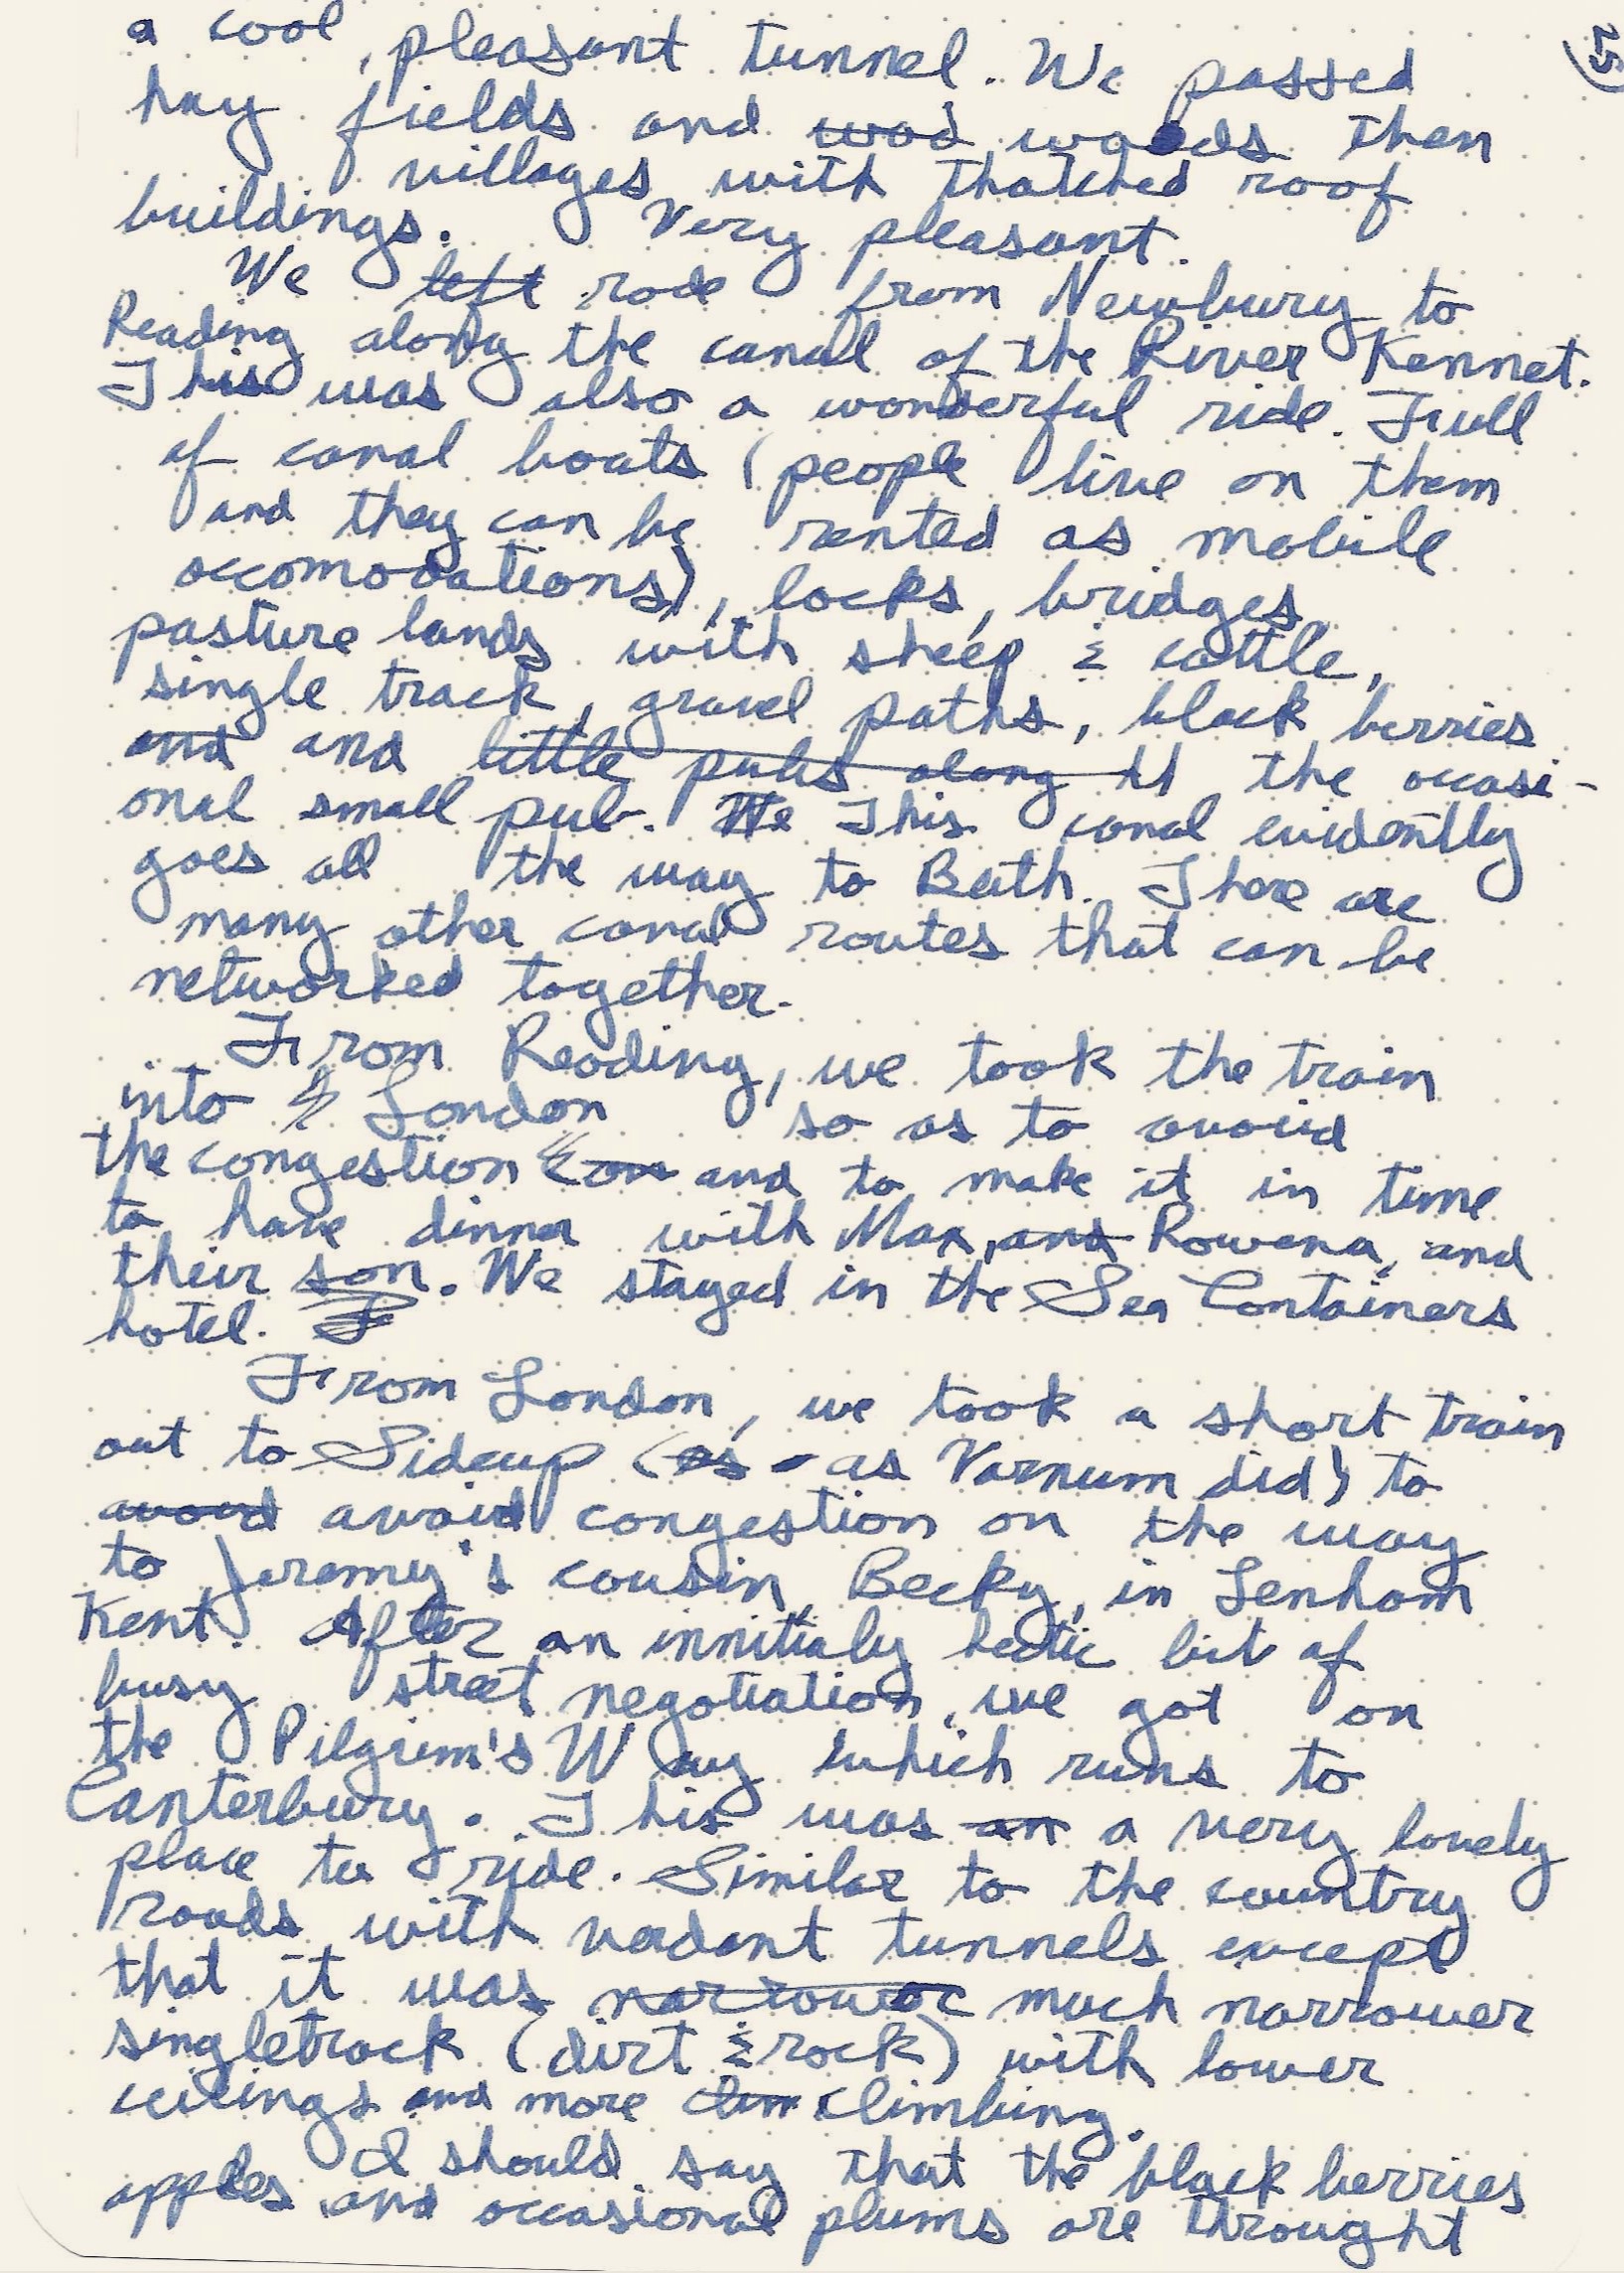 a cool, pleasant tunnel. We passed
hay fields and wod woods then
villages with thatched roof
buildings. Very pleasant.
We left rode from Newbury to
Reading along the canal of the River Kennet.
This was also a wonderful ride. Full
of canal boats (people live on them
and they can be rented as mobile
accomodations), locks, bridges
pasture lands with sheep & cattle,
single track, gravel paths, black berries
and and little pubs along the occasi-
onal small pub. We This canal evidently
goes all the way to Bath. There are
many other canal routes that can be
networked together.
From Reading, we took the train
into London so as to avoid
the congestion con and to make it in time
to have dinner with Max, and Rowena, and
their son. We stayed in the Sea Containers
hotel.
From London, we took a short train
out to Sidcup (as - as Varnum did) to
avoid avoid congestion on the way
to Jeremy's cousin, Becky, in Lenham
Kent. After an innitialy hectic bit of
busy street negotiation, we got on
the Pilgrim's Way which runs to
Canterbury. This was an a very lovely
place to ride. Similar to the country
roads with verdant tunnels except
that it was narrower much narrower
singletrack (dirt & rock) with lower
ceilings and more clim climbing.
I should say that the black berries
apples and occasional plums are throught